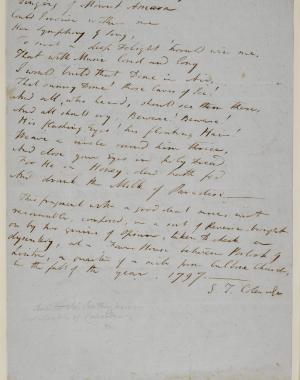 Singing of Mount Amara
Could I revive within me
Her Symphony & Song,
To such a deep Delight 'twould win me,
That with Music loud and long
I would build that Dome in Air,
That sunny Dome! those Caves of Ice!
And all, who heard, should see them there,
And all should cry, Beware! Beware!
His flashing Eyes! his floating Hair!
Weave a circle round him thrice,
And close your Eyes in holy Dread:
For He on Honey-dew hath fed
And drank the Milk of Paradise.
This fragment with a good deal more, not
recoverable, composed, in a sort of Reverie brought
on by two grains of Opium, taken to check a
dysentery, at a Farm House between Porlock &
Linton, a quarter of a mile from Culbone Church,
in the fall of the year, 1797.
S. T. Coleridge